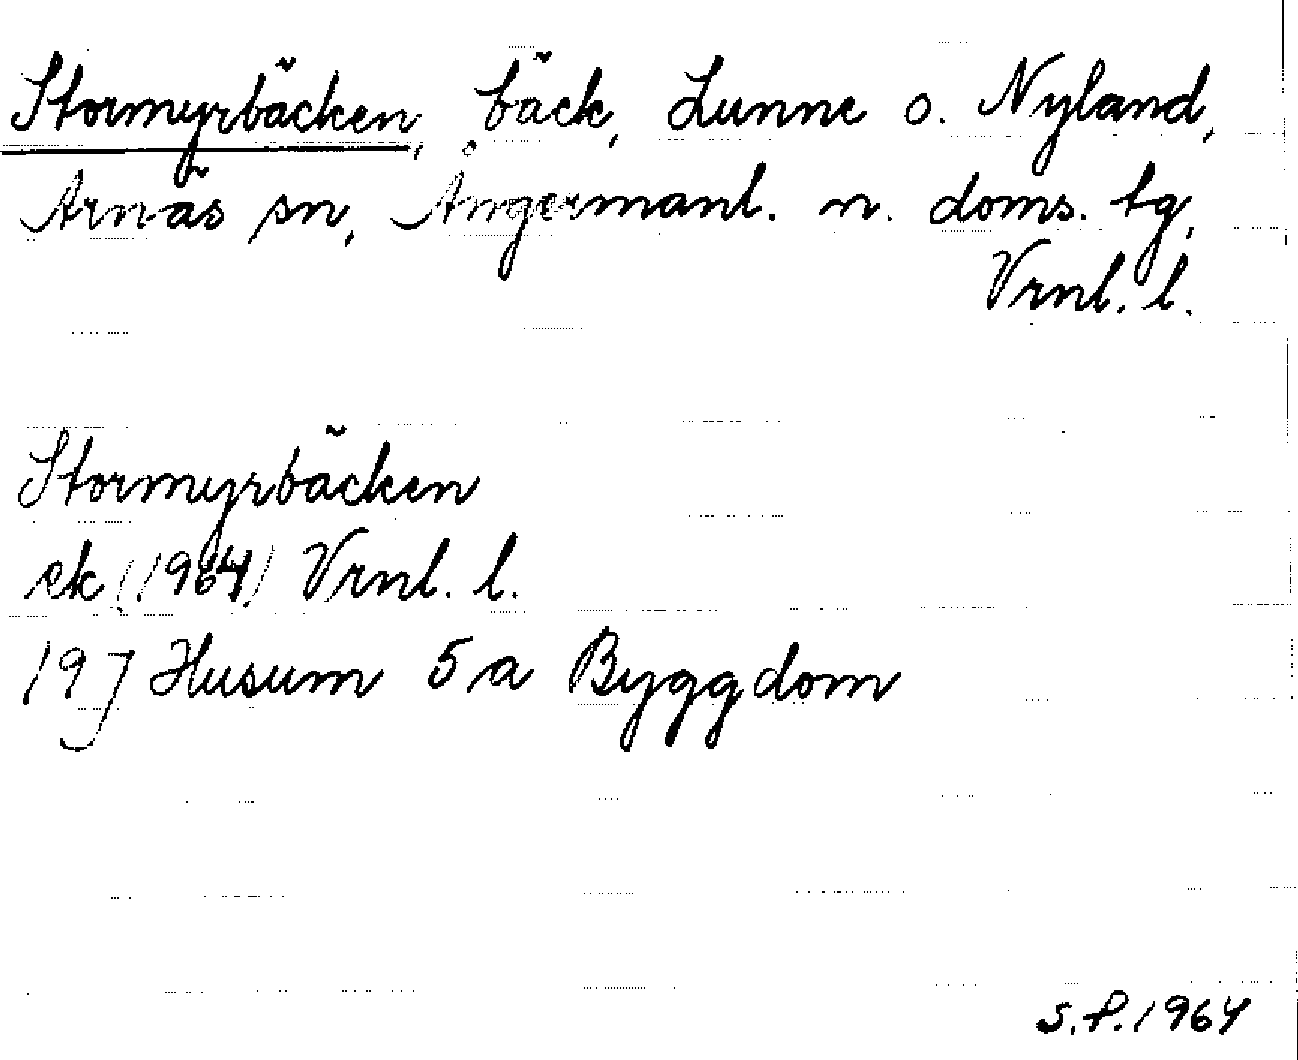 Stormyrbäcken, bäck, Lunne o. Nyland,
Arnäs sn, Ångermanl. n. doms. tg,
Vrnl. l.
Stormyrbäcken
ek (1964) Vrnl. l.
19J Husum 5a Byggdom
S.P. 1964